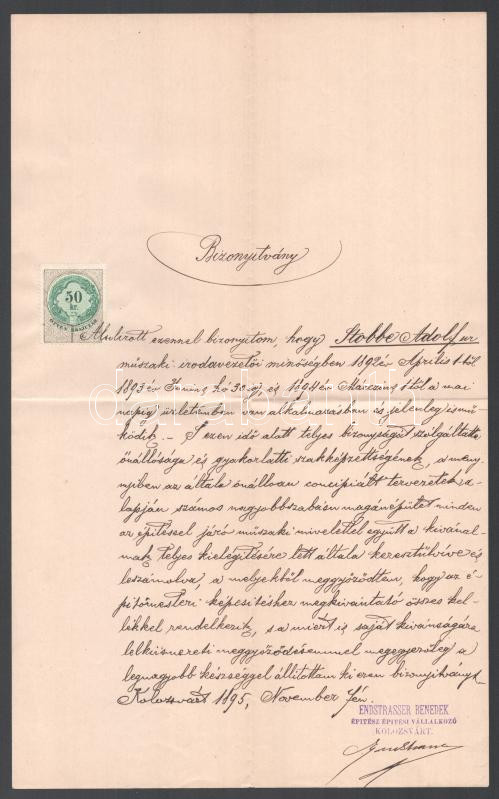 Bizonyitvány
50
kr.
Alulirott ezennel bizonyitom, hogy Stobbe Adolf ur
műszaki irodavezetői minőségben 1892 év Április 1től
1893 év Junius hó 30ig, és 1894 év Márczius 1től a mai
napig üzletemben van alkalmazásban és jelenleg is mű-
ködik. – Ezen idő alatt teljes bizonyságát szolgáltatta
önállósága és gyakorlatti szakképzettségének, a meny-
nyiben az általa önállóan concipiált tervezetek a-
lapján számos nagyobbszabásu magánépület minden
az épitéssel járó műszaki mivelettel együtt a kivánal-
mak teljes kielégitésére lett általa keresztülvive és
leszámolva, a melyekből meggyőződtem, hogy az é-
pitőmesteri képesitéshez megkivántató összes kel-
lékkel rendelkezik, s a miért is saját kivánságára
lelkiismereti meggyőződésemmel megegyezőleg a
legnagyobb készséggel állitottam ki ezen bizonyitványt.
Kolozsvárt 1895, November fén.
ENDSTRASSER BENEDEK
ÉPITÉSZ ÉPITÉSI VÁLLALKOZÓ
KOLOZSVÁRT.